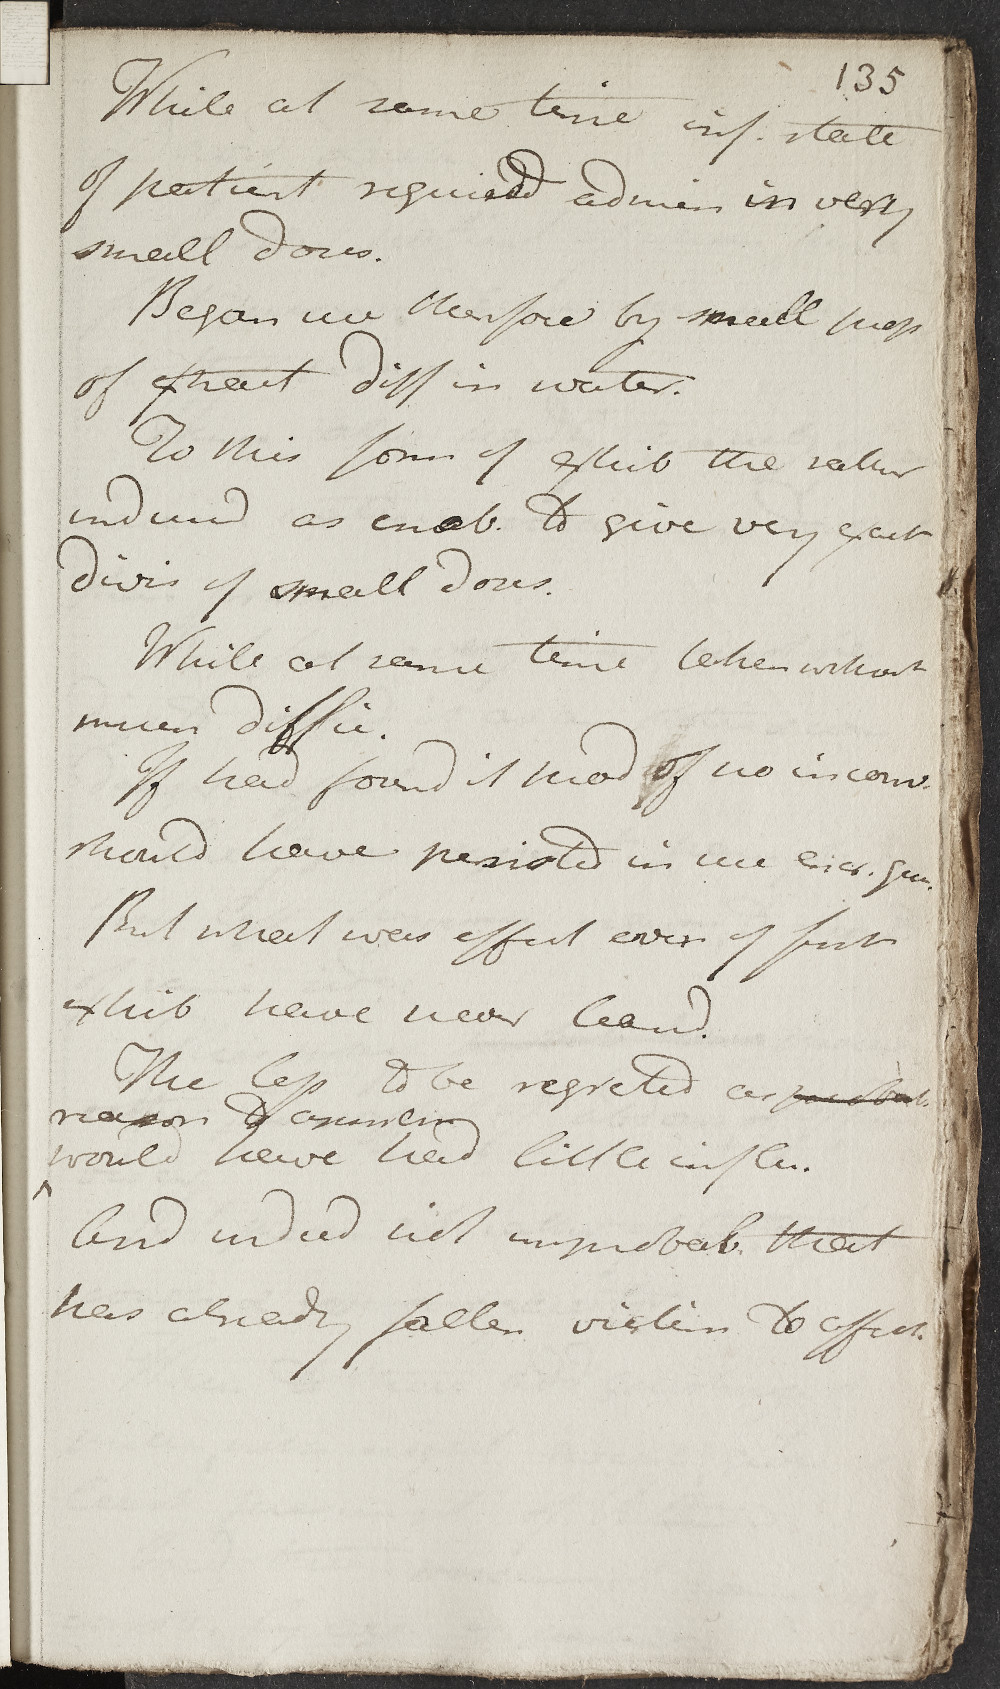 135
While at same time inf. state
of patient requird admin in very
small doses.
Began use therefore by small
of extract diss in water.
To this form of exhib the rather
induced as enab. to give very exact
divis of small doses.
While at same time taken without
much diffic.
If had found it prod of no inconv.
should have persisted in use
But what was effect even of first
exhib have never leand.
The less to be regreted as probab.
reason to
would have had little influ.
And indeed not improbab. that
has already fallen victim to affect.